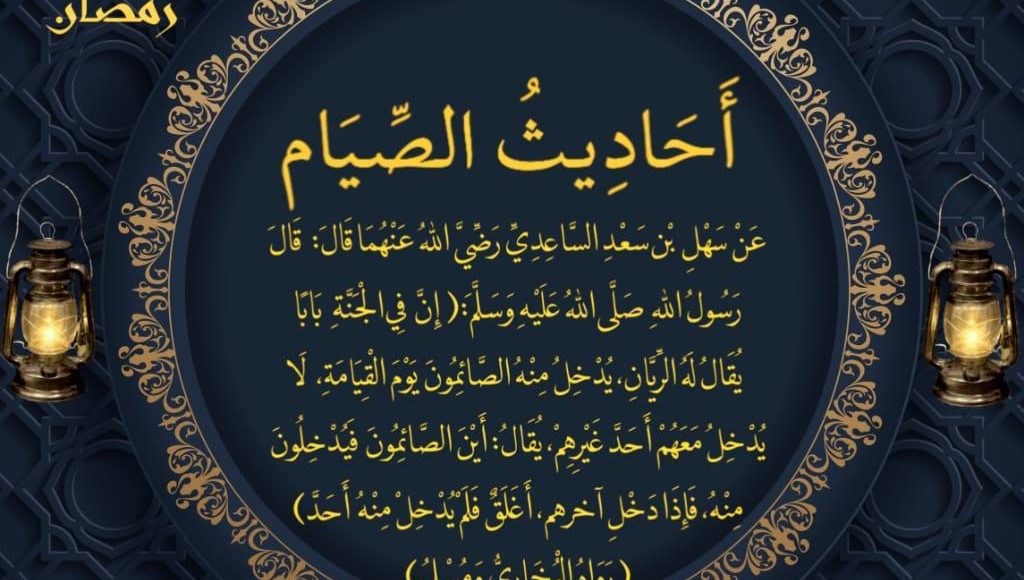 رمضان
أَحَادِيثُ الصِّيَام
عَنْ سَهْلِ بْن سَعْدِ السَّاعِدِيِّ رَضِّيَّ اللهُ عَنْهُمَا قَالَ: قَالَ
رَسُولُ اللهِ صَلَّى اللهُ عَلَيْهِ وَسَلَّمَّ:( إِنَّ فِي الْجَنَّةِ بَابًا
يُقَالُ لَهُ الرَِّيَّانِ، يُدْخِلُ مِنْهُ الصَّائِمُونَ يَوْمَ الْقِيَامَةِ، لَا
يُدْخِلُ مَعَهُمْ أَحَدَّ غَيْرِهِمْ، يُقَالُ: أَيْنَ الصَّائِمُونَ فَيُدْخِلُونَ
مِنْهُ، فَإِذَا دَخْلِ آخرهم، أَغَلَقٌ فَلَمْ يُدْخِلْ مِنْهُ أَحَدَّ)
( رواه الْبُخَارِيُّ وَمُسْلِمُ)